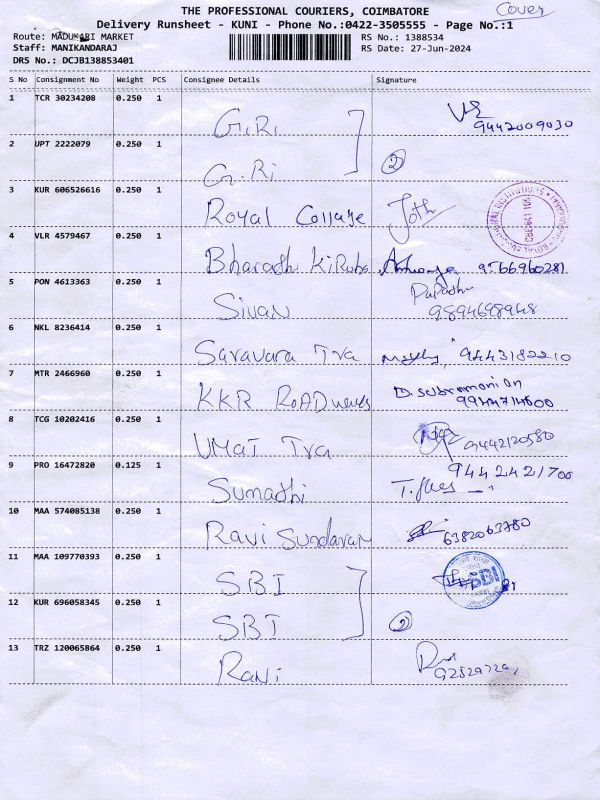 THE PROFESSIONAL COURIERS, COIMBATORE Cover
Delivery Runsheet - KUNI - Phone No.:0422-3505555 - Page No.:1
Route: MADUKARI MARKET RS No.: 1388534
Staff: MANIKANDARAJ RS Date: 27-Jun-2024
DRS No.: DCJB138853401
S No Consignment No Weight PCS Consignee Details Signature
1 TCR 30234208 0.250 1 G.Ri 9442009030
2 UPT 2222079 0.250 1 G.Ri 2
3 KUR 606526616 0.250 1 Royal College Joth
4 VLR 4579467 0.250 1 Bharath 9566960281
5 PON 4613363 0.250 1 Sivan
9894698948
6 NKL 8236414 0.250 1 Saravara Tra 9443182210
7 MTR 2466960 0.250 1 KKR ROADways D. Subramanian
8 TCG 10202416 0.250 1 UMAT Tra 9442120580
9 PRO 16472820 0.125 1 Sumathi 9442421700
10 MAA 574085138 0.250 1 Ravi Sundaram 6382063780
11 MAA 109770393 0.250 1 SBI SBI
12 KUR 696058345 0.250 1 SBI 2
13 TRZ 120065864 0.250 1 Rani